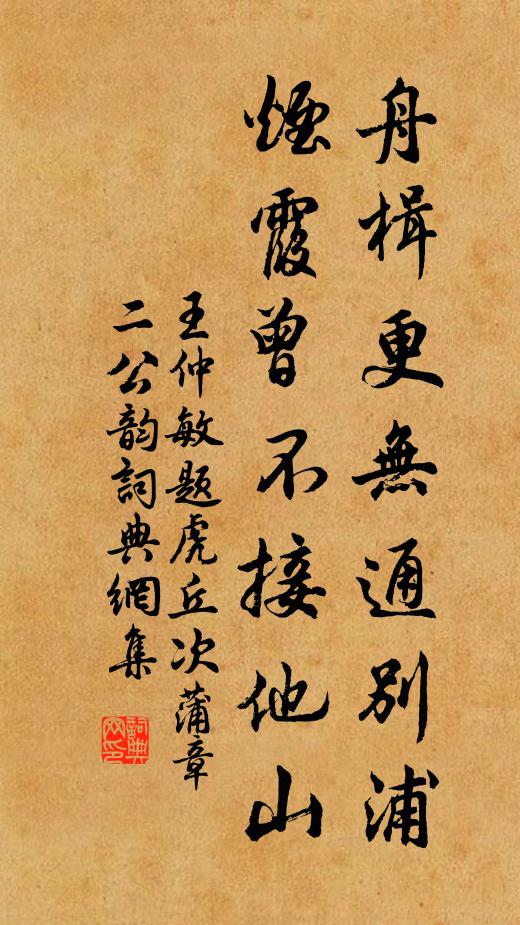 舟楫更無通別浦
煙霞曾不接他山
王仲敏題虎丘次蒲章
二公韵詞典網集
詞典
网印